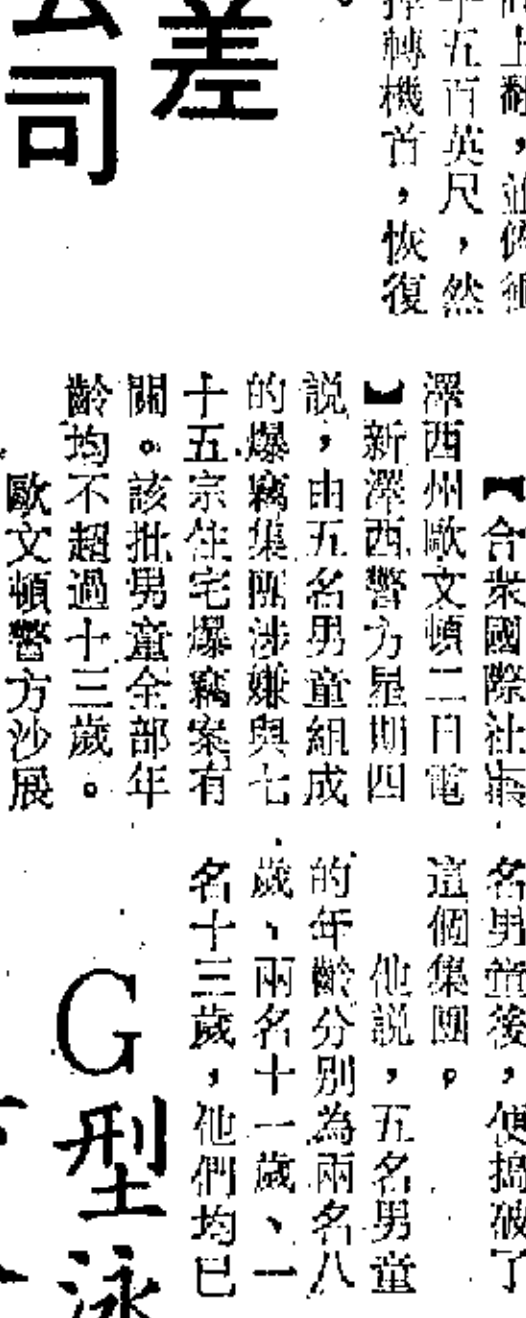 千五百英尺，然
轉機首，恢復
差
公司
【合衆國際社新
澤西州歐文頓二日電
】新澤西警方星期四
説，由五名男童組成
的爆竊集團涉嫌與七
十五宗住宅爆竊案有
關。該批男童全部年
齡均不超過十三歲。
歐文頓警方沙展
名男童後，便搗破了
這個集團。
他説，五名男童
的年齡分別為兩名八
歲、兩名十一歲、一
名十三歲，他們均已
G型泳